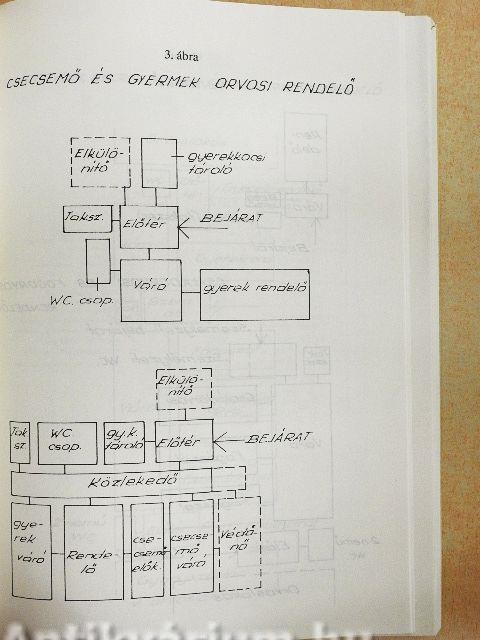 3. ábra
CSECSEMŐ ÉS GYERMEK ORVOSI RENDELŐ
Elkülö-
nítő
gyerekkocsi
tároló
Taksz.
Előtér
BEJÁRAT
WC. csop.
Váró
gyerek rendelő
Elkülö-
nítő
Tak
sz.
WC.
csop.
gy.k.
tároló
Előtér
BEJÁRAT
Közlekedő
gye-
rek
váró
Rende-
lő
cse-
csemő
elők.
csecse-
mő
váró
Védő-
nő
Antikvárium.hu